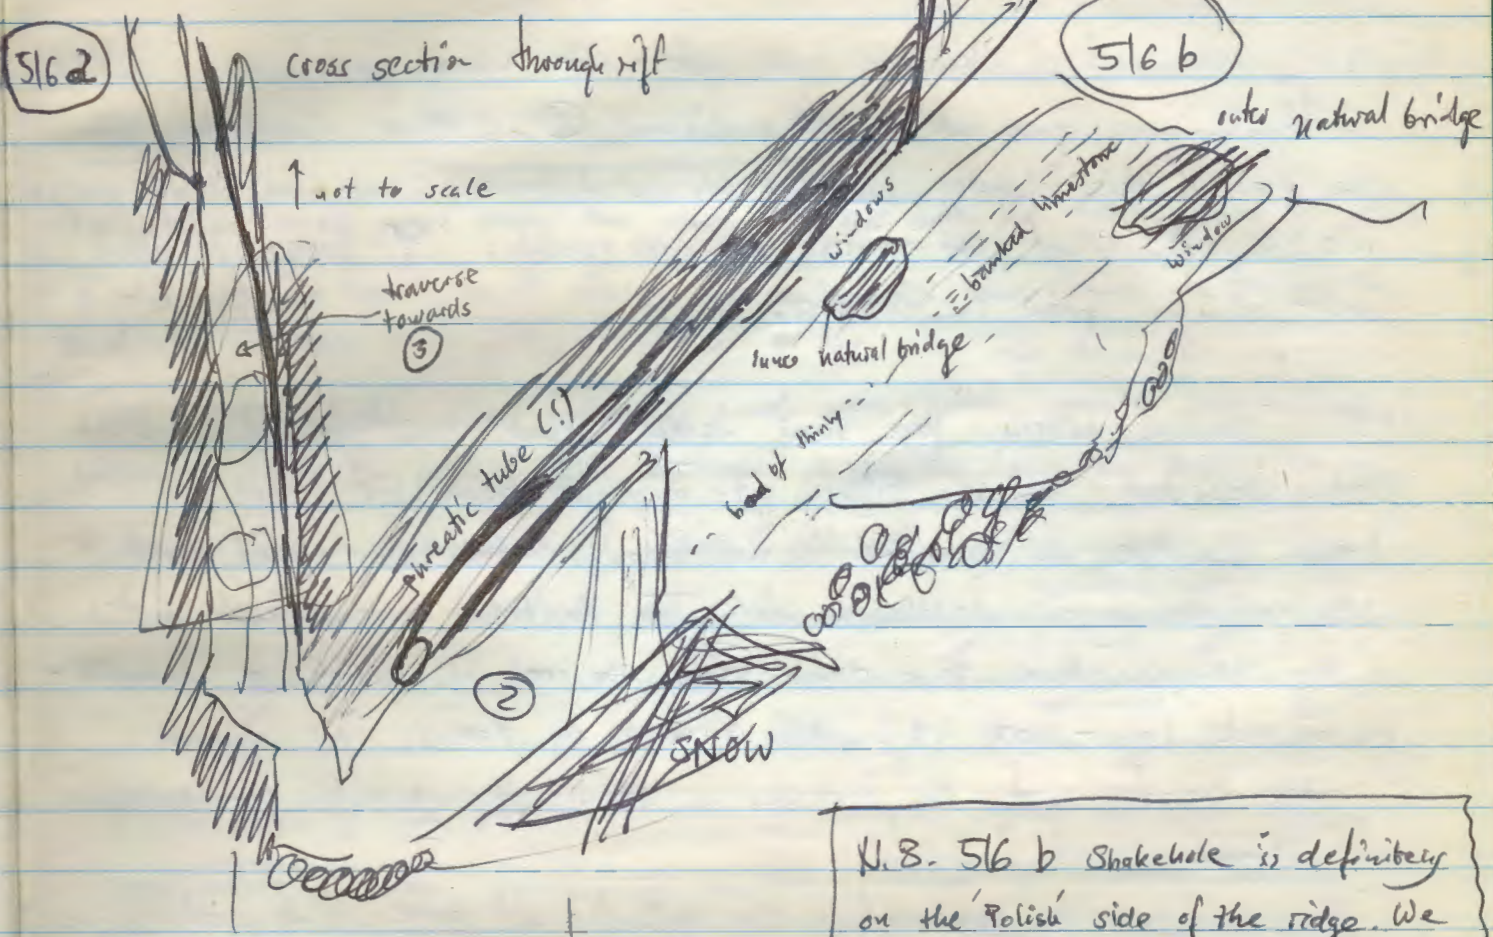 516a
cross section through rift
516 b
outer natural bridge
not to scale
windows
banked limestone
window
traverse
towards
3
inner natural bridge
phreatic tube (!)
bed of thinly
2
SNOW
N.B. 516 b Shakehole is definitely
on the 'Polish' side of the ridge. We